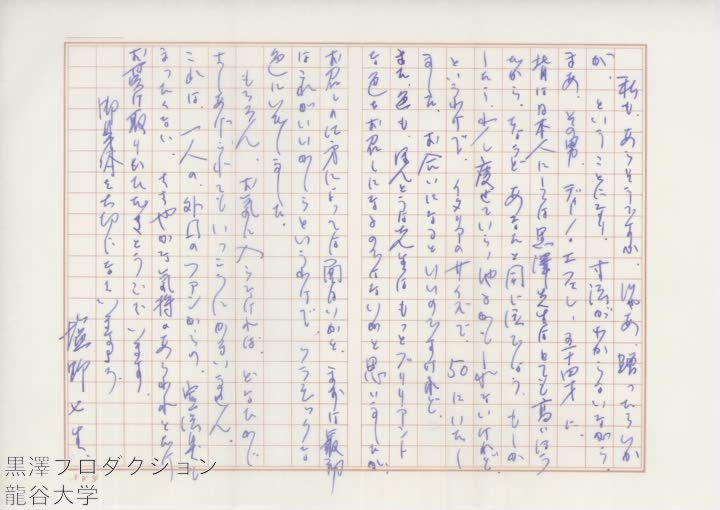 私も、あらそうですか、じゃあ、贈ったらいか
が、ということになり、寸法がわからないながら、
まあ、その男、ディーノ・ 五十四才に、
背は日本人にしては黒澤先生はとても高いほう
だから、ちょうどあなたと同じ位でしょう、もしか
したら、少し痩せていらっしゃるかもしれないけれど、
というわけで、イタリアのサイズで、50にいたし
ました。お合いになるといいのですけれど。
また、色も、ほんとうは先生はもっとブリリアント
な色をお召しになるのではないかと思いましたが、
お召しの仕方によっては面白いかと、
はこれがいいでしょうというわけで、
色にいたしました。
もちろん、お気に入らなければ、どなたかに
さしあげて下さってもいっこうにかまいません。
これは、一人の、外国のファンからの、
まったくない、ささやかな気持のあらわれとだけ
お受け取りいただきとうございます。
御身体を大切になさいますよう。
塩野七生
黒澤プロダクション
龍谷大学